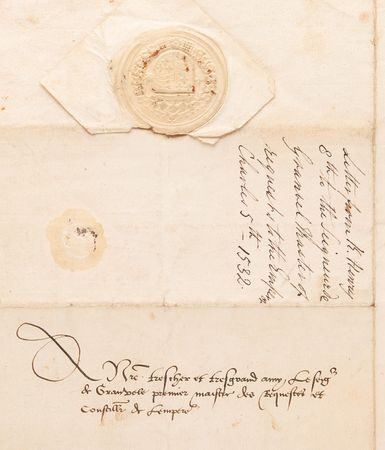 Letter from K Henry
8th to the Seigneur de
Granvel Master of
requests to the Emper
Charles 5th – 1532.
A Nre trescher et tresgrand amy Le seigr
de Granvele premier maistre des Requestes et
Conseillr de Lempere